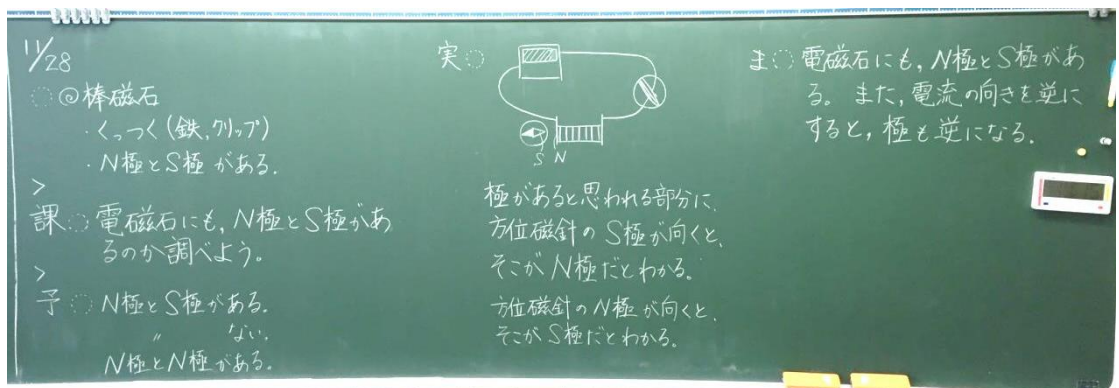 11/28
◎棒磁石
・くっつく(鉄,クリップ)
・N極とS極がある.
>
課 電磁石にも,N極とS極があ
るのか調べよう。
>
予 N極とS極がある.
〃 ない.
N極とN極がある.
実
S N
極があると思われる部分に,
方位磁針のS極が向くと,
そこがN極だとわかる。
方位磁針のN極が向くと,
そこがS極だとわかる。
ま 電磁石にも,N極とS極があ
る。また,電流の向きを逆に
すると,極も逆になる.